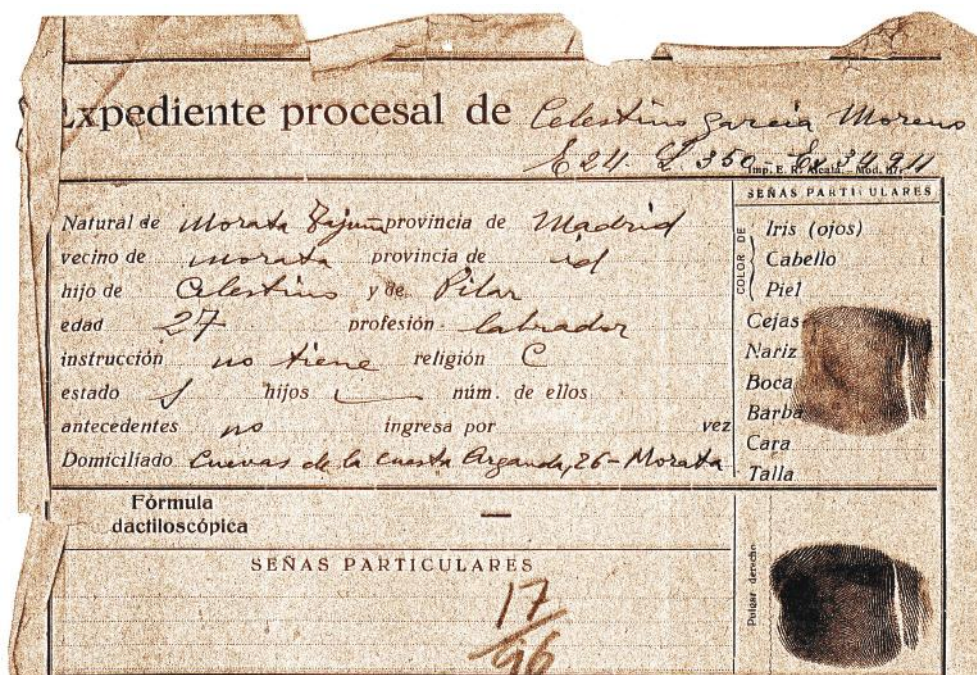 Expediente procesal de Celestino García Moreno
E 24. L 350 - Ex 34911
Imp. E. R. Alcalá. - Mod. 117
Natural de Morata Tajuña provincia de Madrid
vecino de Morata provincia de id
hijo de Celestino y de Pilar
edad 27 profesión labrador
instrucción no tiene religión C
estado S hijos — núm. de ellos
antecedentes no ingresa por vez
Domiciliado Cuevas de la cuesta Arganda, 26 - Morata
SEÑAS PARTICULARES
COLOR DE
Iris (ojos)
Cabello
Piel
Cejas
Nariz
Boca
Barba
Cara
Talla
Fórmula
dactiloscópica —
SEÑAS PARTICULARES
17
96
Pulgar derecho